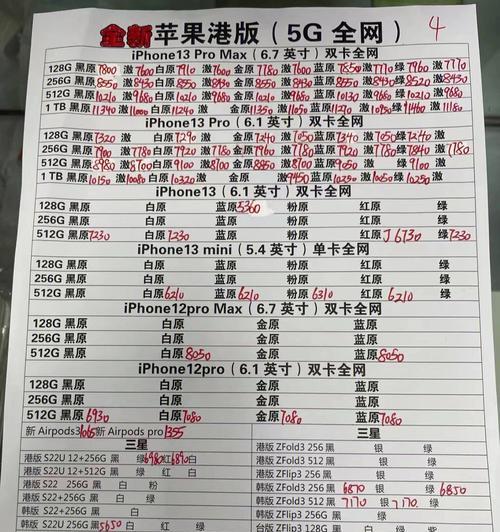 全新 苹果港版（5G 全网） 4
iPhone13 Pro Max（6.7 英寸）双卡全网
128G 黑原 7800 激 7600 白原 7910 激 7600 金原 7780 激 7600 蓝原 7850 激 7770 绿 7960 激 7770
256G 黑原 8550 激 8430 白原 8550 激 8430 金原 8550 激 8430 蓝原 8550 激 8430 绿 8520 激 8430
512G 黑原 10210 激 9680 白原 10210 激 9680 金原 10210 激 9680 蓝原 10130 激 9680 绿 10260 激 9680
1 TB 黑原 11340 激 11000 白原 11240 激 金原 11350 激 11050 蓝原 11270 激 11050 绿 11460 激 11180
iPhone13 Pro（6.1 英寸）双卡全网
128G 黑原 7320 激 白原 7290 激 金原 7240 激 7050 蓝原 7340 激 7050 绿 7240 激
256G 黑原 7900 激 7780 白原 7920 激 7780 金原 7960 激 7780 蓝原 7920 激 7780 绿 7840 激 7780
512G 黑原 8980 激 8700 白原 9100 激 8100 金原 8850 激 8100 蓝原 9050 激 绿 9100 激
1 TB 黑原 10150 激 10080 白原 10320 激 金原 激 9450 蓝原 10250 激 10250 绿 10250 激
iPhone13（6.1 英寸）双卡全网
128G 黑原 白原 蓝原 5360 粉原 红原 绿
256G 黑原 白原 蓝原 粉原 红原 绿
512G 黑原 7230 白原 7230 蓝原 粉原 红原 J 6730 绿 7230
iPhone13 mini（5.4 英寸）单卡全网
128G 黑原 白原 蓝原 粉原 红原 绿
256G 黑原 白原 蓝原 粉原 红原 绿
512G 黑原 白原 6210 蓝原 6210 粉原 6310 红原 6210 绿
iPhone12pro Max（6.7 英寸）双卡全网
128G 黑原 白原 金原 蓝原
256G 黑原 白原 金原 蓝原
512G 黑原 白原 8050 金原 蓝原 8050
iPhone12pro（6.1 英寸）双卡全网
128G 黑原 白原 金原 蓝原
256G 黑原 白原 金原 蓝原
512G 黑原 6930 白原 7080 金原 7080 蓝原 7080
新 Airpods3 1065 新 Airpods pro 1355
三星
港版 S22U 12+256G 黑 绿 6980 红 6890 白
港版 S22U 12+512G 黑 绿 红 白
港版 S22 256G 黑 白 粉
韩版 S22+256G 黑 绿 白
韩版 S22+256G 黑 绿 白
韩版 S22U 256G 黑 5650 绿 红 白
三星
港版 ZFold3 256 黑 银 绿
港版 ZFold3 512 黑 银 绿
港版 ZFlip3 256 黑
韩版 ZFold3 256 黑 6870 银 绿 6850
韩版 ZFold3 512 黑 7170 银 7170 绿
韩版 ZFlip3 256G 黑
台版 ZFlip3 128G 黑 白 紫